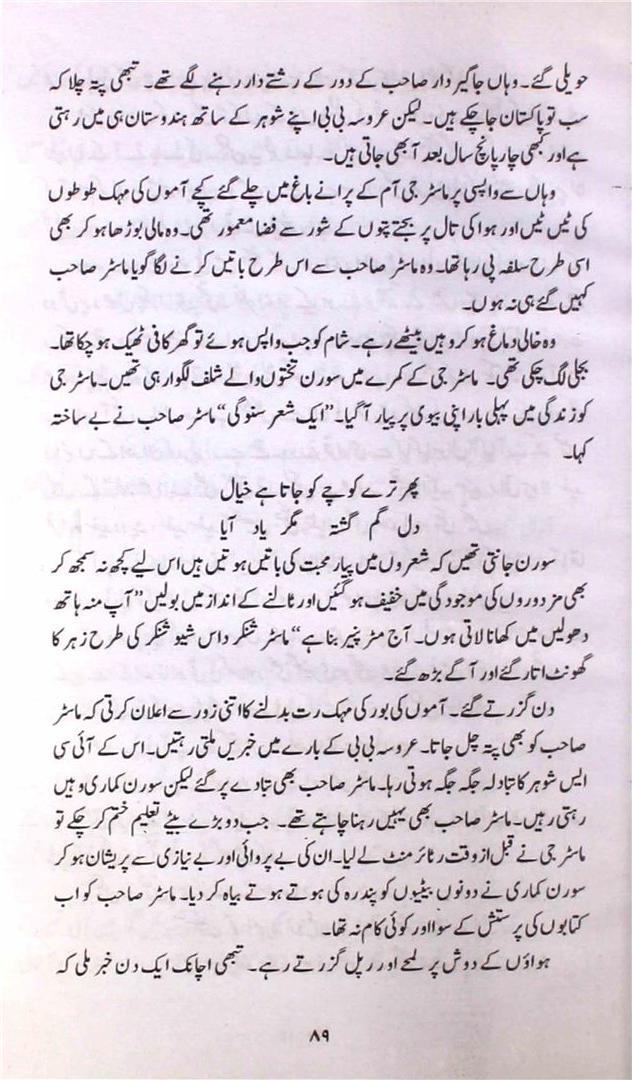 حویلی گئے۔ وہاں جاگیردار صاحب کے دور کے رشتے دار رہنے لگے تھے۔ تبھی پتہ چلا کہ
سب تو پاکستان جاچکے ہیں۔ لیکن عروسہ بی بی اپنے شوہر کے ساتھ ہندوستان ہی میں رہتی
ہے اور کبھی چار پانچ سال بعد آبھی جاتی ہیں۔
وہاں سے واپسی پر ماسٹر جی آم کے پرانے باغ میں چلے گئے کچے آموں کی مہک طوطوں
کی ٹیں ٹیں اور ہوا کی تال پر بجتے پتوں کے شور سے فضا معمور تھی۔ وہ مالی بوڑھا ہوکر بھی
اسی طرح سلفہ پی رہا تھا۔ وہ ماسٹر صاحب سے اس طرح باتیں کرنے لگا گویا ماسٹر صاحب
کہیں گئے ہی نہ ہوں۔
وہ خالی دماغ ہوکر وہیں بیٹھے رہے۔ شام کو جب واپس ہوئے تو گھر کافی ٹھیک ہوچکا تھا۔
بجلی لگ چکی تھی۔ ماسٹر جی کے کمرے میں سورن تختوں والے شلف لگوا رہی تھیں۔ ماسٹر جی
کو زندگی میں پہلی بار اپنی بیوی پر پیار آگیا۔ ”ایک شعر سنوگی“ ماسٹر صاحب نے بے ساختہ
کہا۔
پھر ترے کوچے کو جاتا ہے خیال
دل گم گشتہ مگر یاد آیا
سورن جانتی تھیں کہ شعروں میں پیار محبت کی باتیں ہوتیں ہیں اس لیے کچھ نہ سمجھ کر
بھی مزدوروں کی موجودگی میں خفیف ہوگئیں اور ٹالنے کے انداز میں بولیں ”آپ منہ ہاتھ
دھولیں میں کھانا لاتی ہوں۔ آج مٹر پنیر بنا ہے“ ماسٹر شنکر داس شیو شنکر کی طرح زہر کا
گھونٹ اتار گئے اور آگے بڑھ گئے۔
دن گزرتے گئے۔ آموں کی بور کی مہک رت بدلنے کا اتنی زور سے اعلان کرتی کہ ماسٹر
صاحب کو بھی پتہ چل جاتا۔ عروسہ بی بی کے بارے میں خبریں ملتی رہتیں۔ اس کے آئی سی
ایس شوہر کا تبادلہ جگہ جگہ ہوتی رہا۔ ماسٹر صاحب بھی تبادے بر گئے لیکن سورن کماری وہیں
رہتی رہیں۔ ماسٹر صاحب بھی یہیں رہنا چاہتے تھے۔ جب دو بڑے بیٹے تعلیم ختم کر چکے تو
ماسٹر جی نے قبل از وقت رٹائرمنٹ لے لیا۔ ان کی بے پروائی اور بے نیازی سے پریشان ہوکر
سورن کماری نے دونوں بیٹیوں کو پندرہ کی ہوتے ہوتے بیاہ کردیا۔ ماسٹر صاحب کو اب
کتابوں کی پرستش کے سوا اور کوئی کام نہ تھا۔
ہواؤں کے دوش پر لمحے اور پل گزرتے رہے۔ تبھی اچانک ایک دن خبر ملی کہ
۸۹